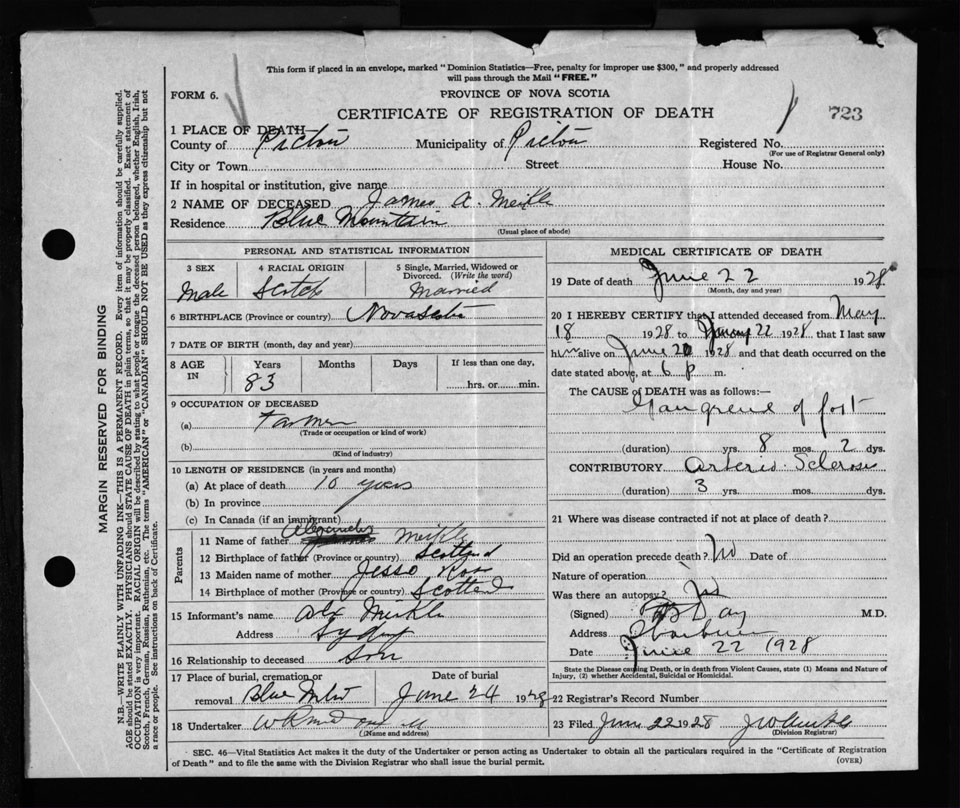 This form if placed in an envelope, marked "Dominion Statistics—Free, penalty for improper use $300," and properly addressed
will pass through the Mail "FREE."
FORM 6.
PROVINCE OF NOVA SCOTIA
CERTIFICATE OF REGISTRATION OF DEATH
723
1 PLACE OF DEATH
County of Pictou Municipality of Pictou Registered No.
(For use of Registrar General only)
City or Town Street House No.
If in hospital or institution, give name
2 NAME OF DECEASED James A. Meikle
Residence Blue Mountain
(Usual place of abode)
PERSONAL AND STATISTICAL INFORMATION
3 SEX 4 RACIAL ORIGIN 5 Single, Married, Widowed or
Divorced. (Write the word)
Male Scotch Married
6 BIRTHPLACE (Province or country) Nova Scotia
7 DATE OF BIRTH (month, day and year)
8 AGE Years Months Days If less than one day,
IN 83 hrs. or min.
9 OCCUPATION OF DECEASED
(a) Farmer
(Trade or occupation or kind of work)
(b)
(Kind of industry)
10 LENGTH OF RESIDENCE (in years and months)
(a) At place of death 10 years
(b) In province
(c) In Canada (if an immigrant)
Parents
11 Name of father Alexander Meikle
12 Birthplace of father (Province or country) Scotland
13 Maiden name of mother Ross
14 Birthplace of mother (Province or country) Scotland
15 Informant's name Alx Meikle
Address Sydney
16 Relationship to deceased Son
17 Place of burial, cremation or Date of burial
removal Blue Mtn June 24 1928
18 Undertaker
(Name and address)
MEDICAL CERTIFICATE OF DEATH
19 Date of death June 22 1928
(Month, day and year)
20 I HEREBY CERTIFY that I attended deceased from May
18 1928 to 22 1928 that I last saw
him alive on June 20 1928 and that death occurred on the
date stated above, at 6 p m.
The CAUSE OF DEATH was as follows:—
Gangrene of foot
(duration) yrs. 8 mos. 2 dys.
CONTRIBUTORY Arterio Sclerosis
(duration) 3 yrs. mos. dys.
21 Where was disease contracted if not at place of death?
Did an operation precede death? No Date of
Nature of operation
Was there an autopsy?
(Signed) Day M.D.
Address
Date June 22 1928
State the Disease causing Death, or in death from Violent Causes, state (1) Means and Nature of
Injury, (2) whether Accidental, Suicidal or Homicidal.
22 Registrar's Record Number
23 Filed June 22 1928 Meikle
(Division Registrar)
SEC. 46—Vital Statistics Act makes it the duty of the Undertaker or person acting as Undertaker to obtain all the particulars required in the "Certificate of Registration
of Death" and to file the same with the Division Registrar who shall issue the burial permit.
(OVER)
MARGIN RESERVED FOR BINDING
N.B.—WRITE PLAINLY WITH UNFADING INK—THIS IS A PERMANENT RECORD. Every item of information should be carefully supplied.
AGE should be stated EXACTLY. PHYSICIANS should STATE CAUSE OF DEATH in plain terms, so that it may be properly classified. Exact statement of
OCCUPATION is very important. RACIAL ORIGIN will be described by stating to what people or tongue the deceased person belonged, whether English, Irish,
Scotch, French, German, Russian, Ruthenian, etc. The terms "AMERICAN" or "CANADIAN" SHOULD NOT BE USED as they express citizenship but not
a race or people. See instructions on back of Certificate.